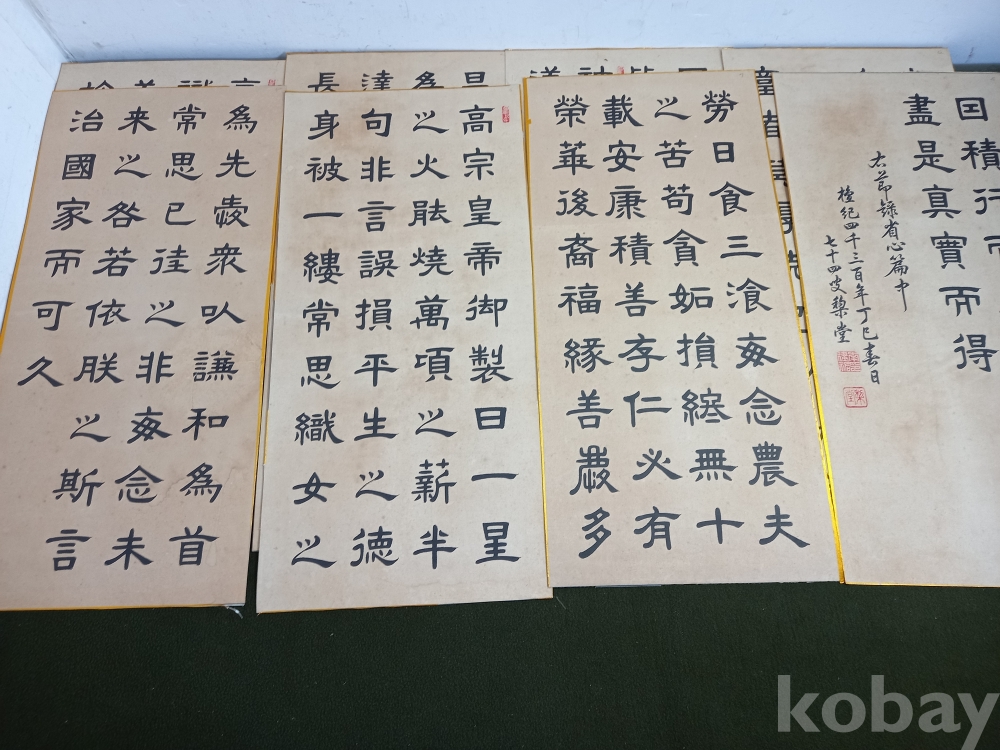 高宗皇帝御製曰一星
之火能燒萬頃之薪半
句非言誤損平生之德
身被一縷常思織女之
勞日食三飡每念農夫
之苦苟貪妬損終無十
載安康積善存仁必有
榮華後裔福緣善慶多
囙積行而
盡是真實而得
右節錄省心篇中
檀紀四千三百年丁巳春日
七十四叟黎堂
為先愛衆以謙和為首
常思已往之非每念未
来之咎若依朕之斯言
治國家而可久
長達為
kobay